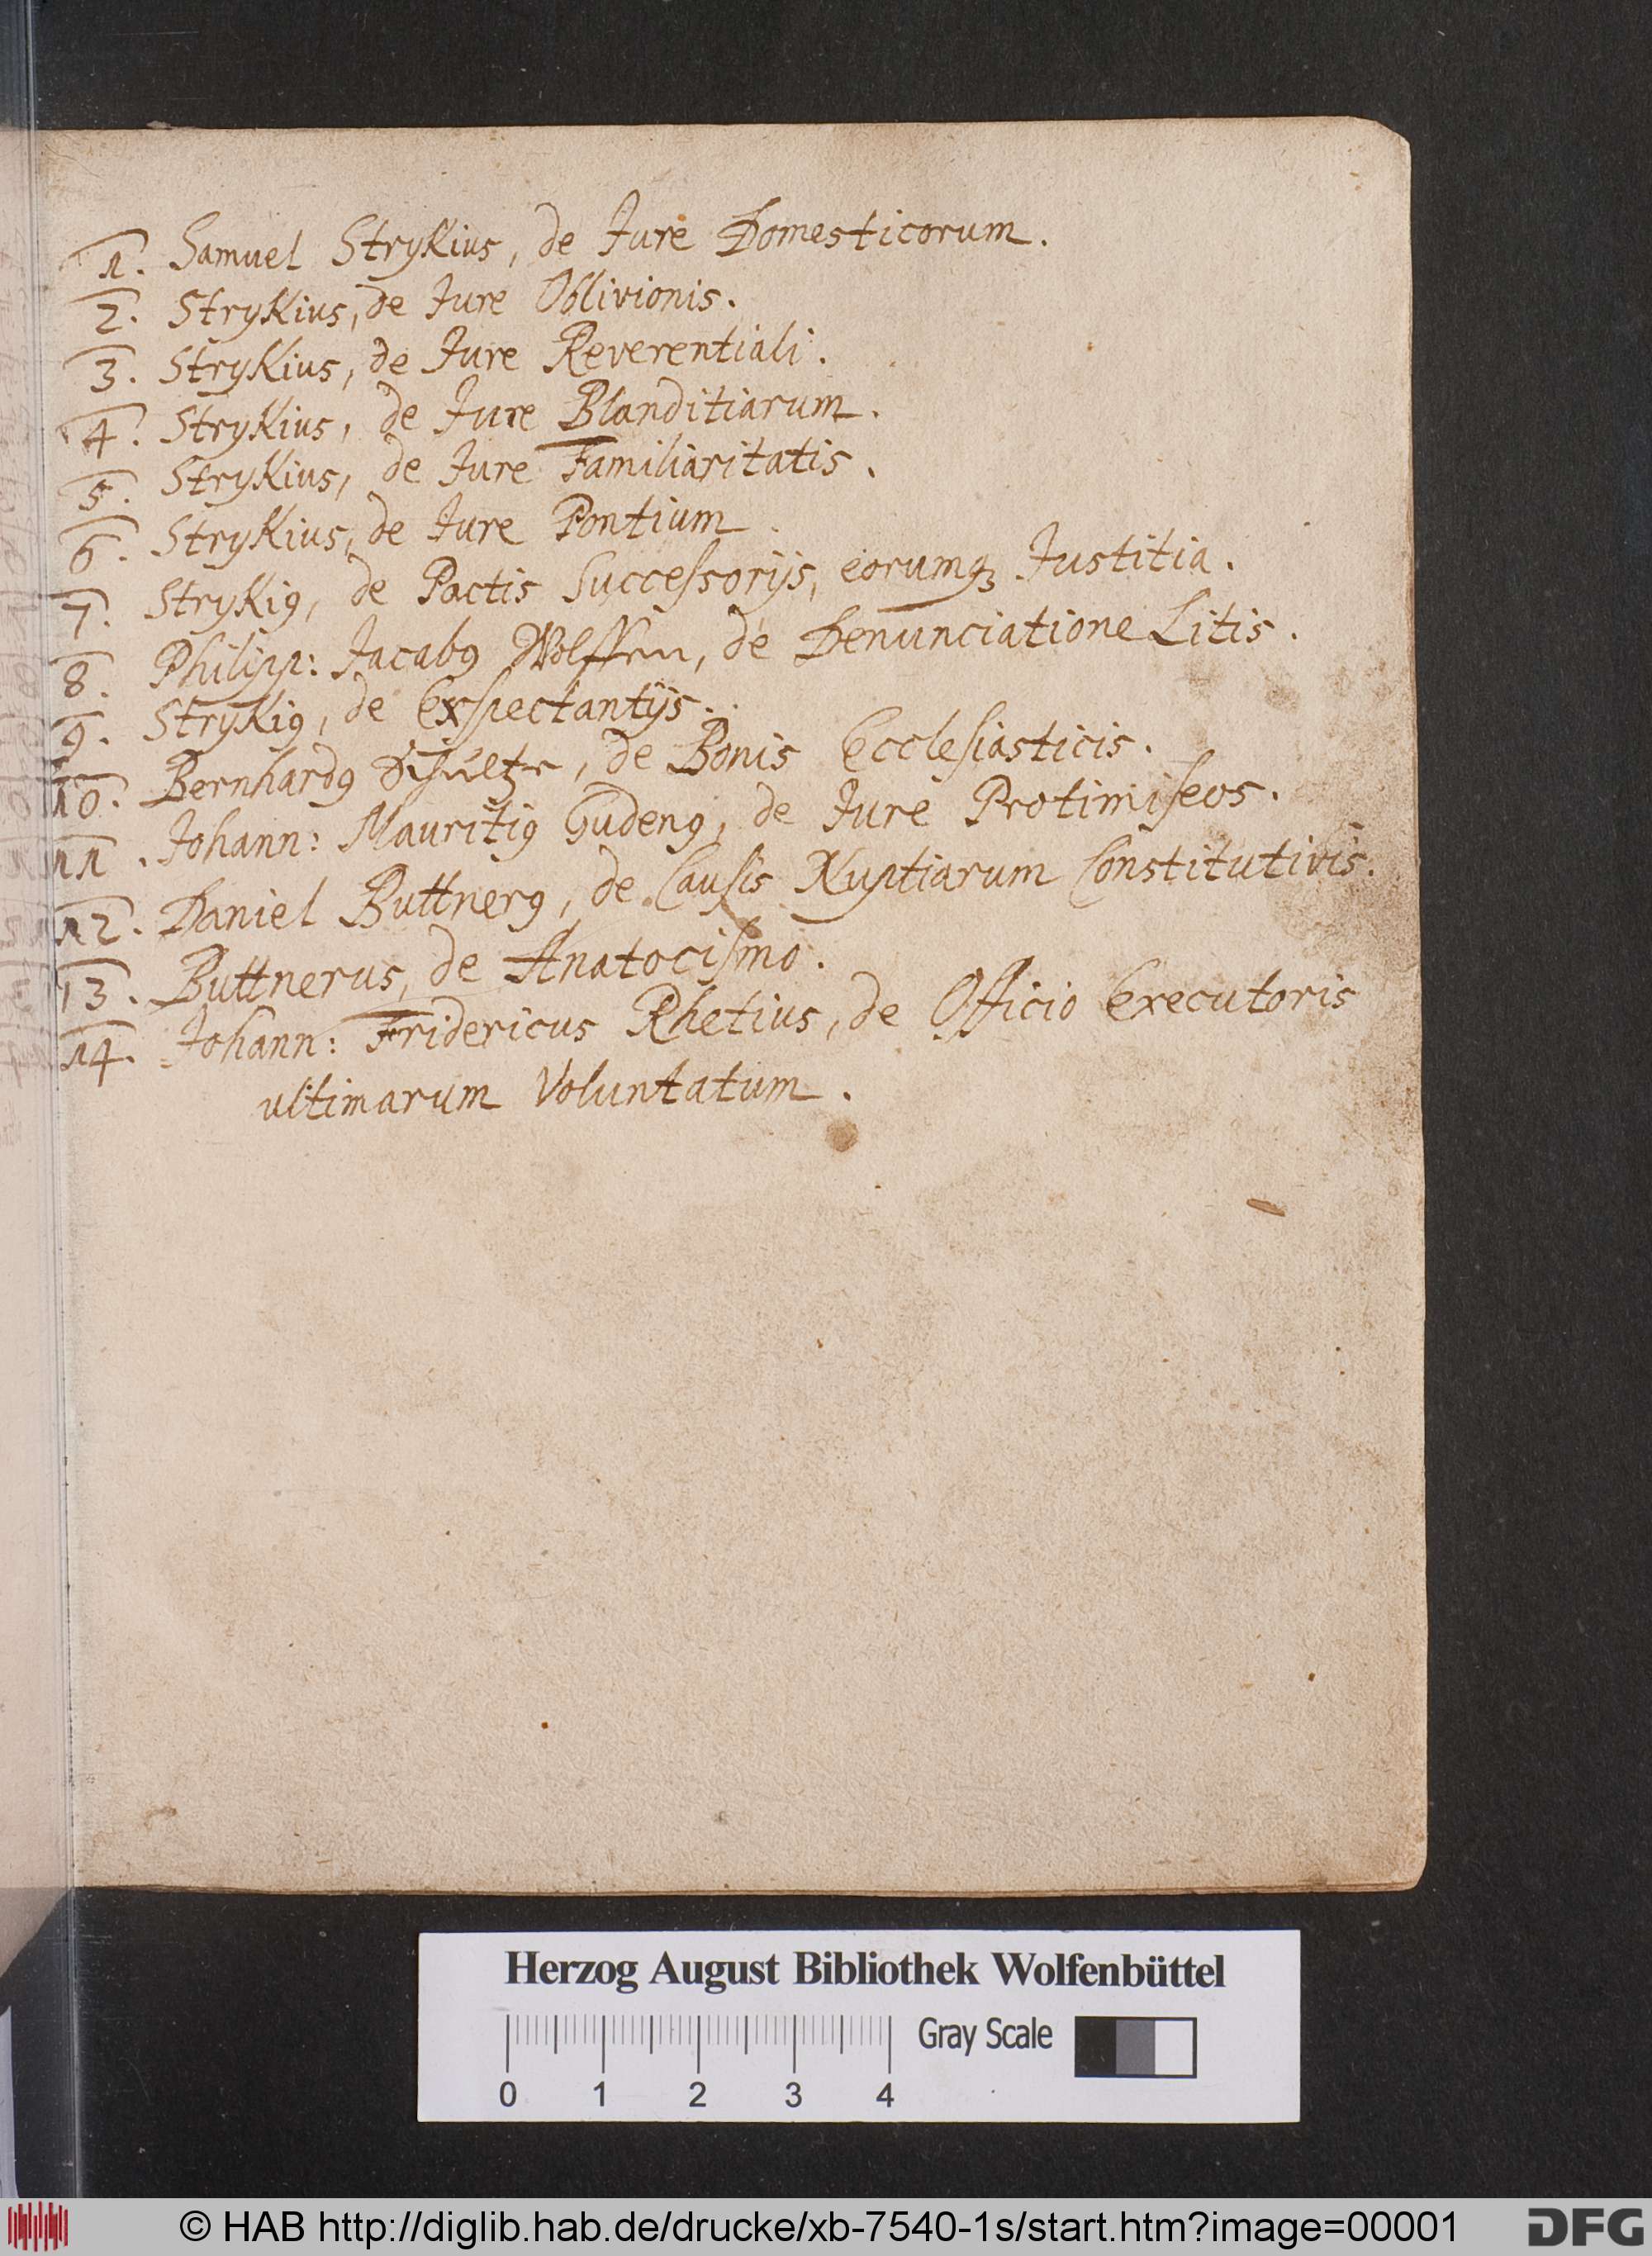 1. Samuel Strykius, de Jure Domesticorum.
2. Strykius, de Jure Oblivionis.
3. Strykius, de Jure Reverentiali.
4. Strykius, de Jure Blanditiarum.
5. Strykius, de Jure Familiaritatis.
6. Strykius, de Jure Pontium.
7. Strykiꝰ, de Pactis Succeſsorijs, eorumqꝫ Justitia.
8. Philipp: Jacabꝰ Wolffen, de Denunciatione Litis.
9. Strykiꝰ, de Exspectantijs.
10. Bernhardꝰ Schultze, de Bonis Eccleſiasticis.
11. Johann: Mauritiꝰ Gudenꝰ, de Jure Protimiſeos.
12. Daniel Buttnerꝰ, de Cauſis Nuptiarum Constitutivis.
13. Buttnerus, de Anatociſmo.
14. Johann: Fridericus Rhetius, de Officio Executoris
ultimarum Voluntatum.
Herzog August Bibliothek Wolfenbüttel
Gray Scale
0 1 2 3 4
© HAB http://diglib.hab.de/drucke/xb-7540-1s/start.htm?image=00001
DFG